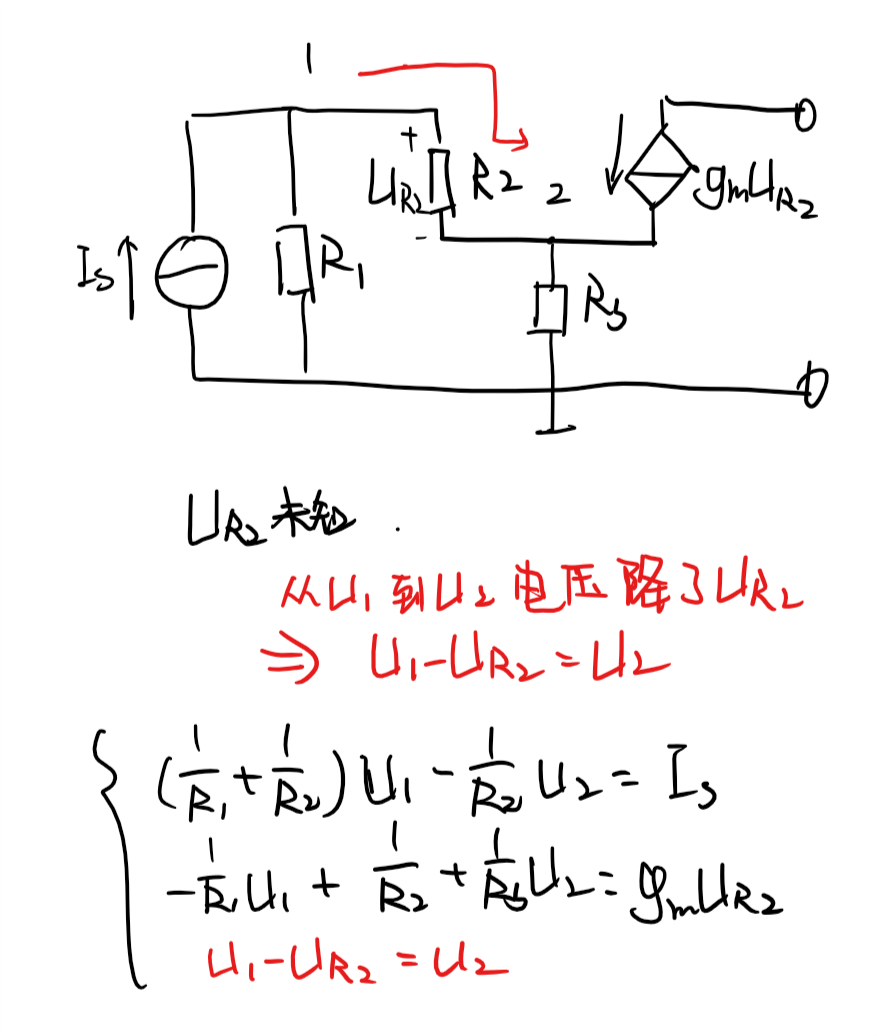 1
+
U_{R2} R2 2 g_m U_{R2}
-
I_S R_1 R_3
U_{R2} 未知 .
从 U_1 到 U_2 电压降了 U_{R2}
⇒ U_1 - U_{R2} = U_2
(1/R_1 + 1/R_2) U_1 - 1/R_2 U_2 = I_S
- 1/R_1 U_1 + 1/R_2 + 1/R_3 U_2 = g_m U_{R2}
U_1 - U_{R2} = U_2